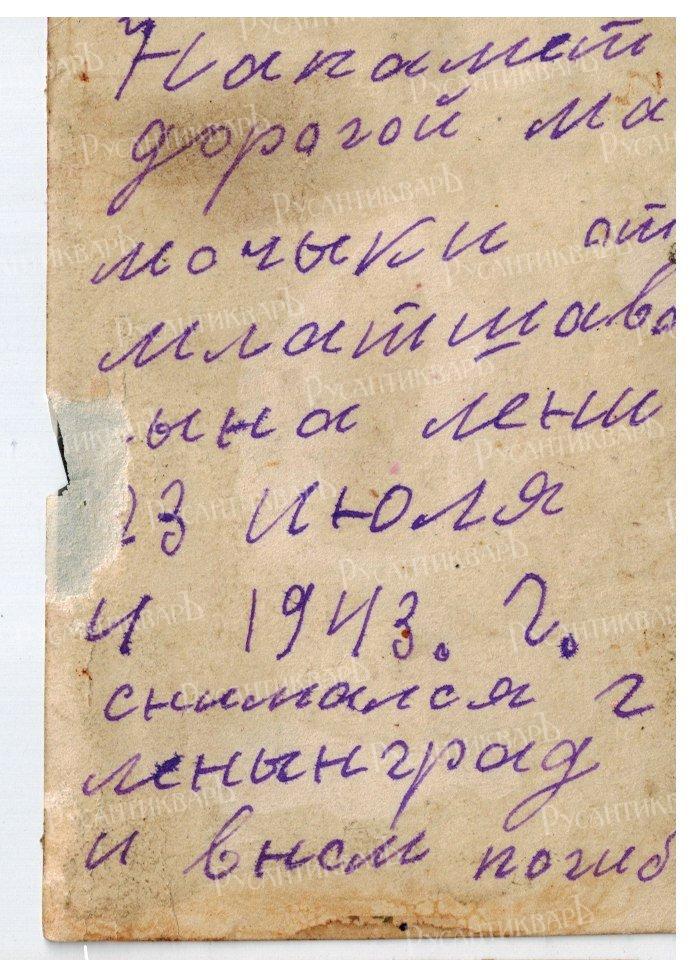 Напамет
дорогой ма
мочыки от
млатшава
ына лени
23 июля
и 1943. г.
снимался г
ленынград
и внем погиб